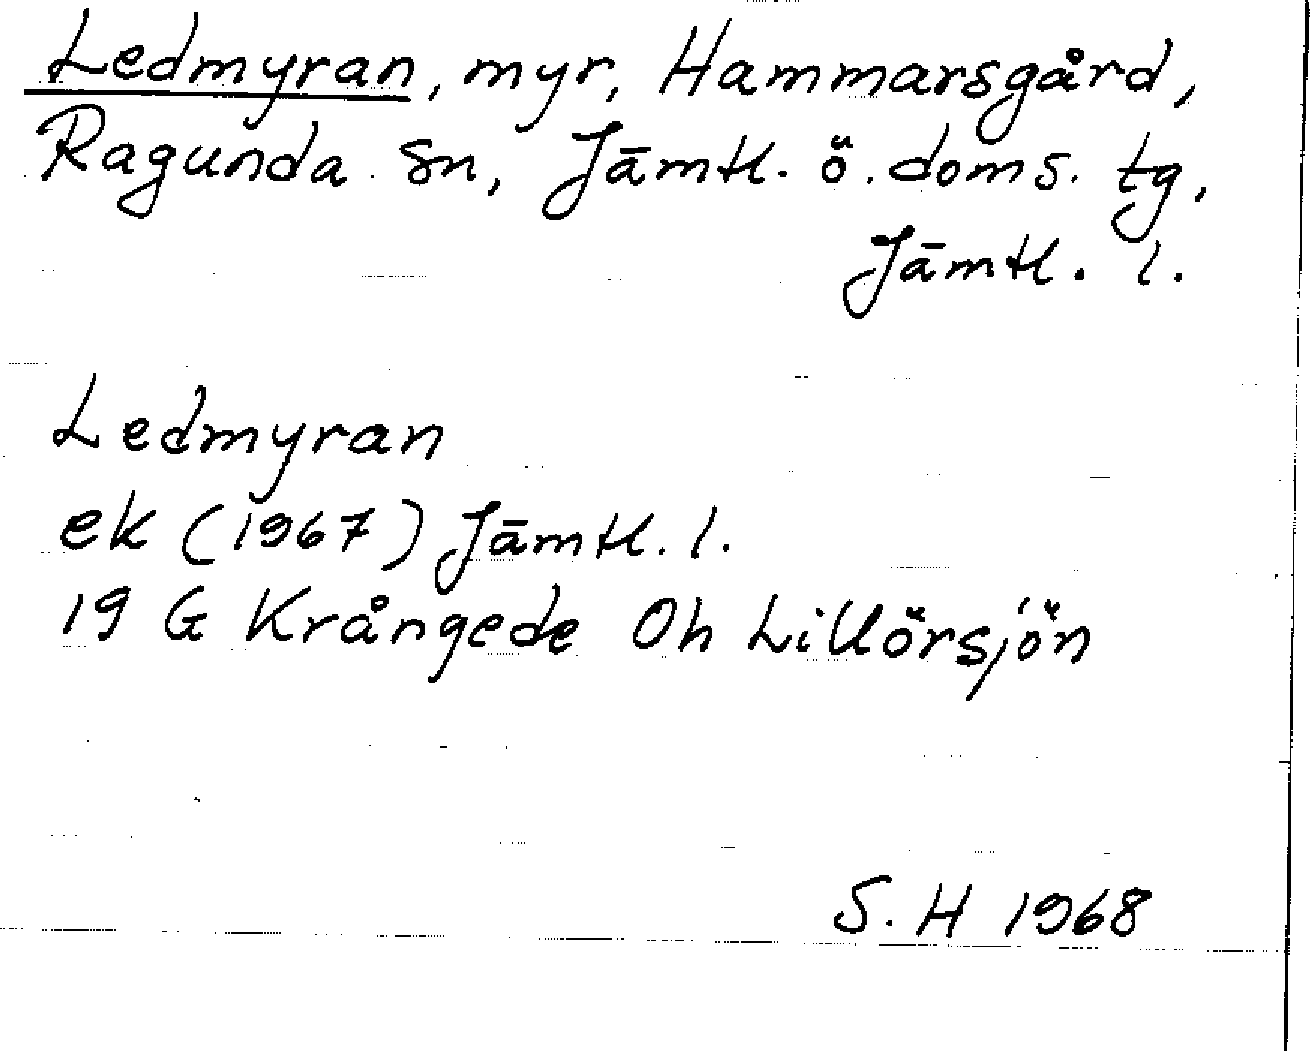 Ledmyran, myr, Hammarsgård,
Ragunda sn, Jämtl. ö. doms. tg,
Jämtl. l.
Ledmyran
ek (1967) Jämtl. l.
19 G Krångede Oh Lillörsjön
S. H 1968